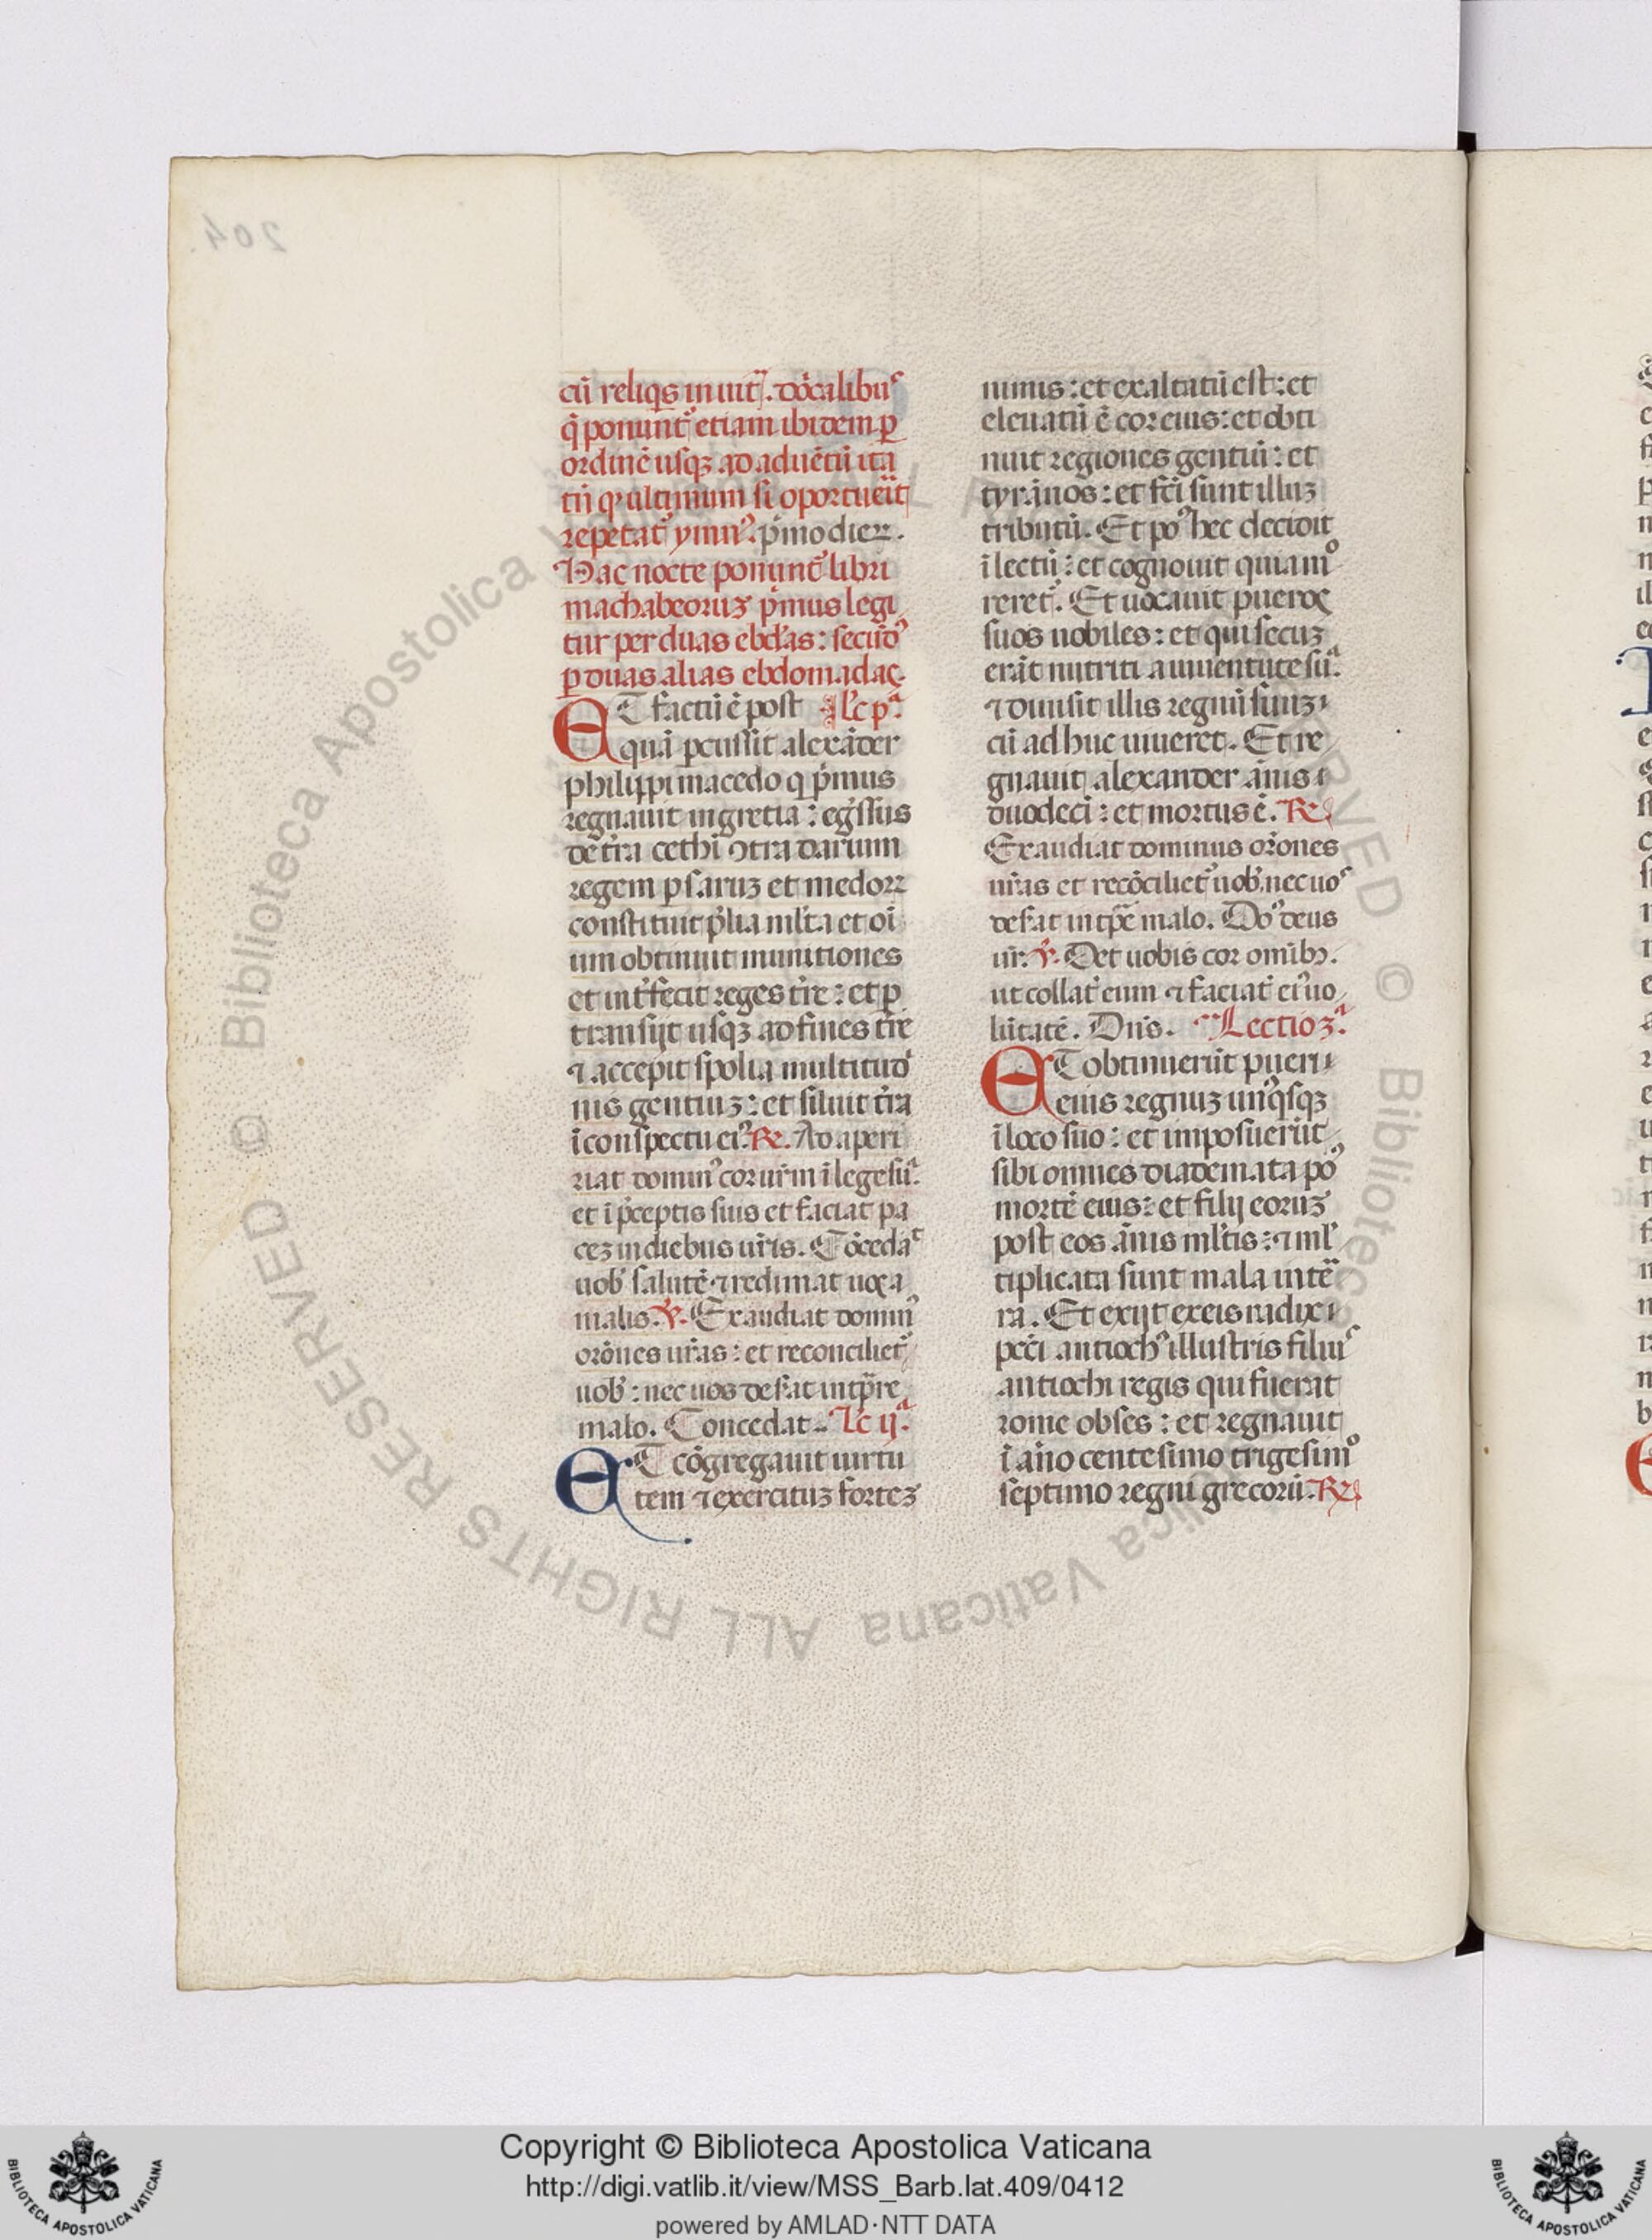 cū reliq̄s inuit̄. d̄ocalibu᷒
q̄ ponunt᷑ etiam ibidem ꝑ
ordinē usqꝫ ad aduētū ita
tn̄ ꝙ ultimum si oportueīt
repetat᷑ ymnꝰ. p̄mo dieꝝ.
Hac nocte ponunt᷑ libri
machabeoruꝫ p̄mus legi
tur per duas ebd̄as: secūdꝰ
ꝑ duas alias ebdomadas.
ET factū ē post l̄c pᵃ.
quā ꝑcussit alexāder
philippi macedo q̄ p̄mus
regnauit in gretia: eḡssus
de t̄ra cethī ꝯtra darium
regem ꝑsaruꝫ et medoꝝ
constituit p̄lia ml̄ta et oī
um obtinuit munitiones
et int̄fecit reges t̄re: et ꝑ
transijt usqꝫ ad fines t̄re
⁊ accepit spolia multitud̄
nis gentiuꝫ: et siluit t̄ra
ī conspectu eiꝰ. ℞. Adaperi
riat dominꝰ cor ur̄m ī lege sūᵃ.
et ī p̄ceptis suis et faciat pa
ceꝫ in diebus ur̄is. Cōceda᷒
uob̄ salutē ⁊ redimat uos a
malis. ℣. Exaudiat dominꝰ
orōnes ur̄as: et reconciliet᷑
uob̄: nec uos deserat in tp̄re
malo. Concedat. l̄c ijᵃ.
ET cōgregauit uirtu
tem ⁊ exercituꝫ forteꝫ
nimis: et exaltatū est: et
eleuatū ē cor eius: et obti
nuit regiones gentiū: et
tyrānos: et fc̄i sunt illuꝫ
tributū. Et poꝰ hec decidit
ī lectū: et cognouit quia mᵒ
reret᷑. Et uocauit pueros
suos nobiles: et qui secuꝫ
erāt nutriti a iuuentute sūᵃ.
⁊ diuisit illis regnū suuꝫ
cū adhuc uiueret. Et re
gnauit alexander ānis
duodecī: et mortus ē. ℞
Exaudiat dominus orōnes
ur̄as et recōciliet᷑ uob̄, nec uo᷒
deserat in tp̄e malo. Doꝰ deus
ur̄. ℣. Det uobis cor omībꝫ.
ut collat᷑ eum ⁊ faciat᷑ eiꝰ uo
lūtatē. Dn̄s. Lectio 3ᵃ.
ET obtinuerūt pueri
eius regnuꝫ unꝰqsqꝫ
ī loco suo: et imposuerūt
sibi omnes diademata poꝰ
mortē eius: et filij eoruꝫ
post eos ānis ml̄tis: ⁊ ml̄
tiplicata sunt mala in te᷑
ra. Et exijt ex eis radix
pec̄i antiochꝰ illustris filiu᷒
antiochi regis qui fuerat
rome obses: et regnauit
ī an̄o centesimo trigesimᵒ
septimo regni grecorū. ℞
204.
Copyright © Biblioteca Apostolica Vaticana
http://digi.vatlib.it/view/MSS_Barb.lat.409/0412
powered by AMLAD·NTT DATA
BIBLIOTECA APOSTOLICA VATICANA
BIBLIOTECA APOSTOLICA VATICANA
© Biblioteca Apostolica Vaticana ALL RIGHTS RESERVED